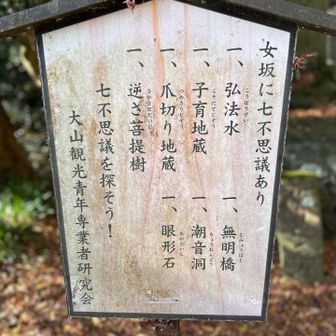 女坂に七不思議あり
一、弘法水 一、無明橋
一、子育地蔵 一、潮音洞
一、爪切り地蔵 一、眼形石
一、逆さ菩提樹
七不思議を探そう！
大山観光青年専業者研究会